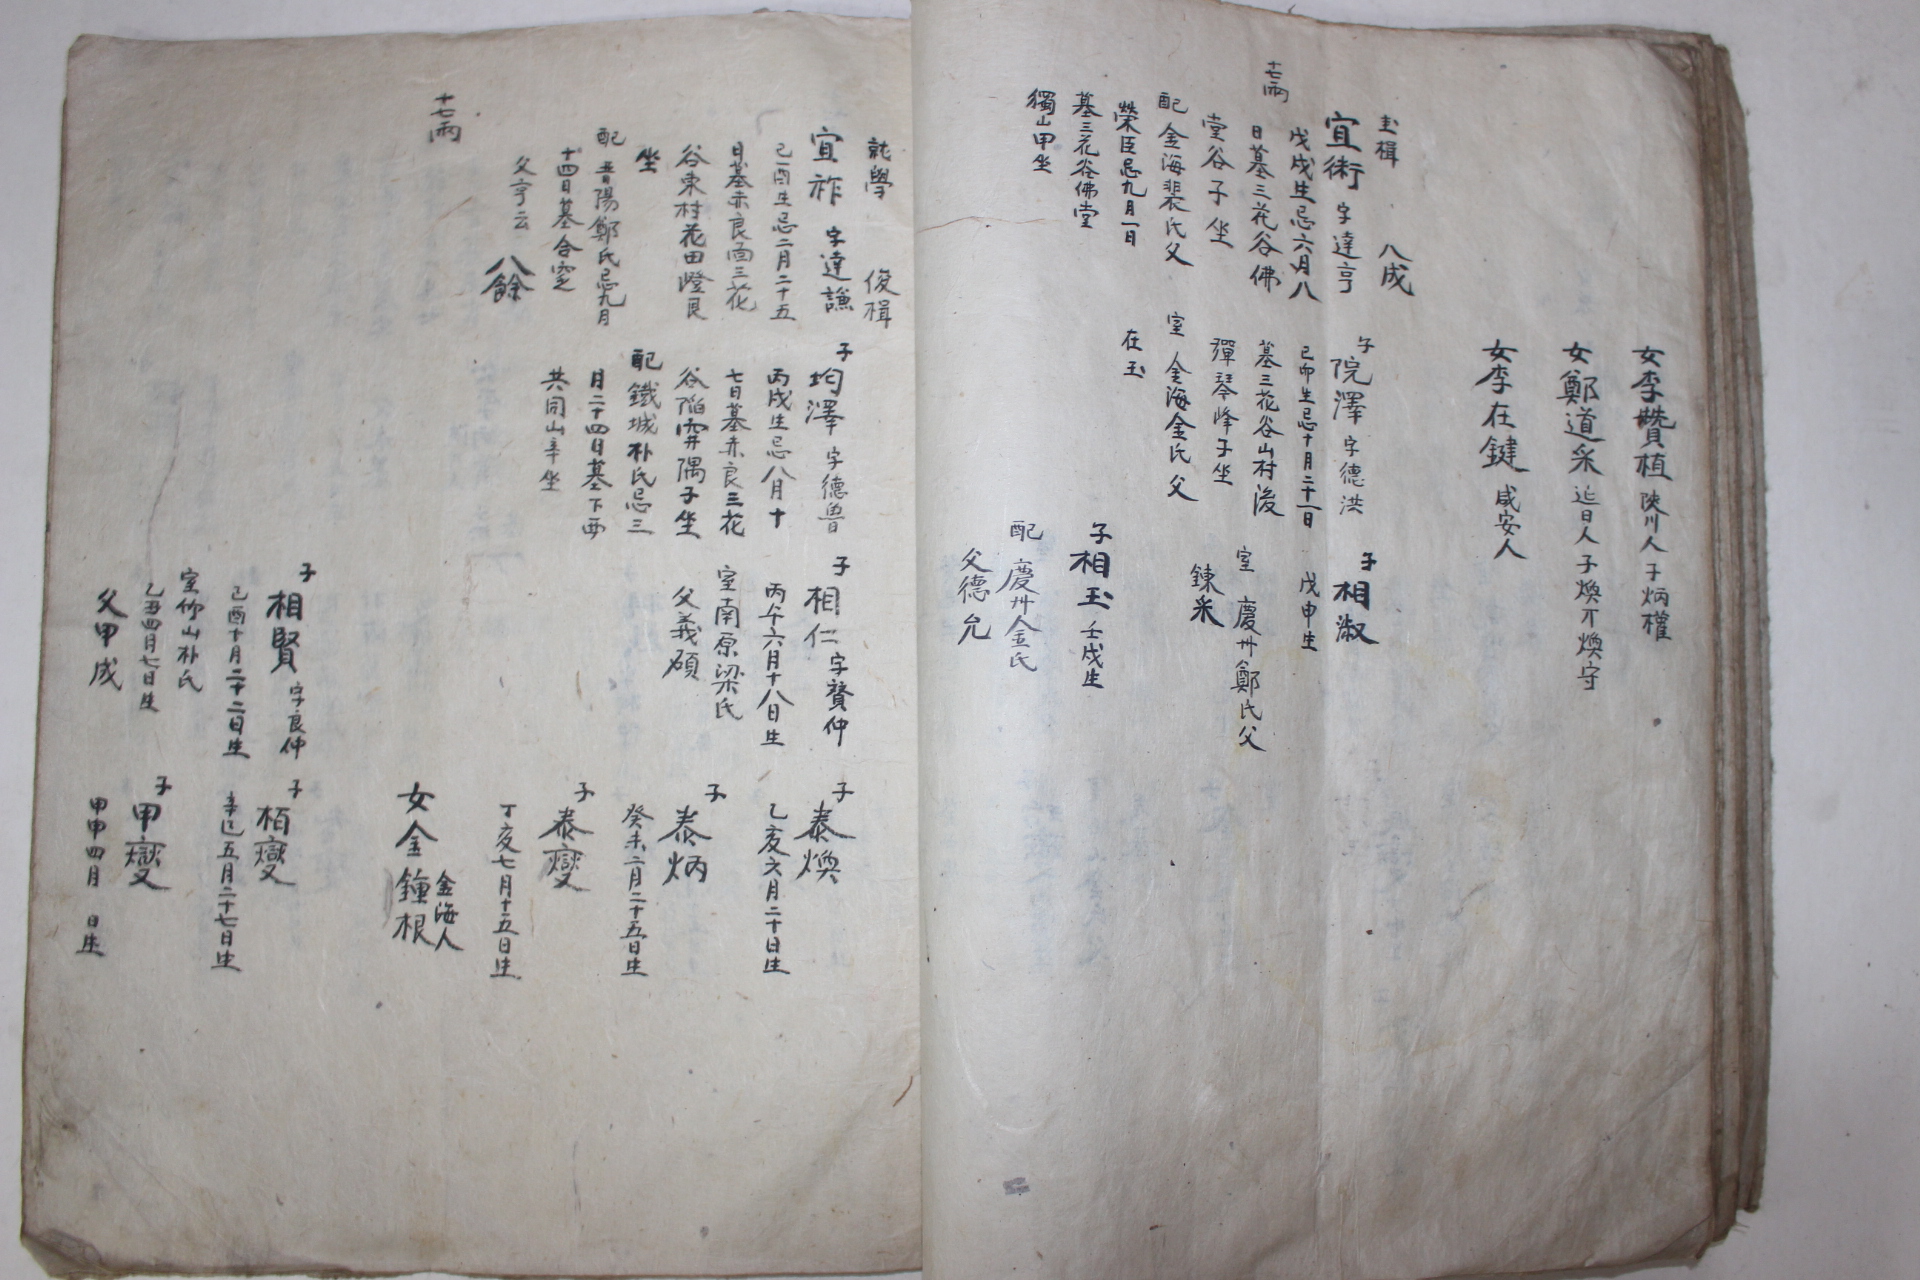 女李贊植 陜川人 子炳權
女鄭道采 延日人 子煥不煥守
女李在鍵 咸安人
圭楫 八成
十七兩
宜術 字達亨
戊戌生忌六月八
日墓三花谷佛
堂谷子坐
配金海裴氏父
榮臣忌九月一日
墓三花谷佛堂
獨山甲坐
子 院澤 字德洪
己卯生忌十月二十一日
墓三花谷山村後
彈琴峰子坐
室 金海金氏父
在玉
子 相淑
戊申生
室 慶州鄭氏父
鍊采
子 相玉 壬戌生
配 慶州金氏
父德允
就學 俊楫
宜祚 字達謙
己酉生忌二月二十五
日墓赤良面三花
谷東村花田嶝艮
坐
配晋陽鄭氏忌九月
十四日墓合窆
父亨云 八餘
十七兩
子 均澤 字德魯
丙戌生忌八月十
七日墓赤良三花
谷陷穽隅子坐
配鐵城朴氏忌三
月二十四日墓下西
共同山辛坐
子 相仁 字贊仲
丙午六月十八日生
室南原梁氏
父義碩
子 泰煥
乙亥六月二十日生
子 泰炳
癸未二月二十五日生
子 泰燮
丁亥七月十五日生
女金鍾根 金海人
子 相賢 字良仲
己酉十月二十二日生
室竹山朴氏
乙丑四月七日生
父甲成
子 栢燮
辛巳五月二十七日生
子 甲燮
甲申四月 日生